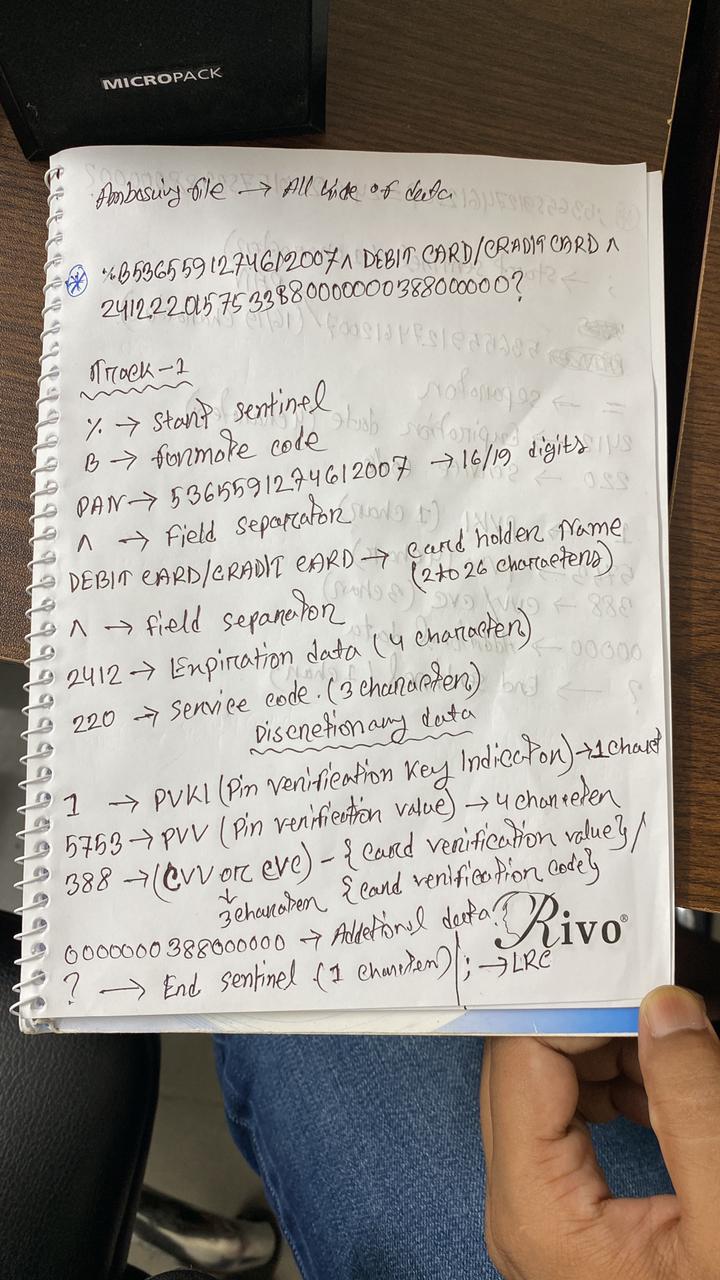 MICROPACK
Ambossing file → All kide of data
%B5365591274612007^ DEBIT CARD/CRADIT CARD ^
2412220157533880000000388000000?
Track-1
% → Start sentinel
B → formate code
PAN → 5365591274612007 → 16/19 digits
^ → Field separator
DEBIT CARD/CRADIT CARD → card holder Name
(2 to 26 characters)
^ → field separator
2412 → Expiration data (4 character)
220 → Service code. (3 character)
Discretionary data
1 → PVKI (Pin verification Key Indicator) → 1 charet
5753 → PVV (Pin verification value) → 4 charecter
388 → (CVV or CVC) - {card verification value} /
↓
3 charater {card verification code}
0000000388000000 → Addetional data.
Rivo®
? → End sentinel (1 charcter) | ; → LRC